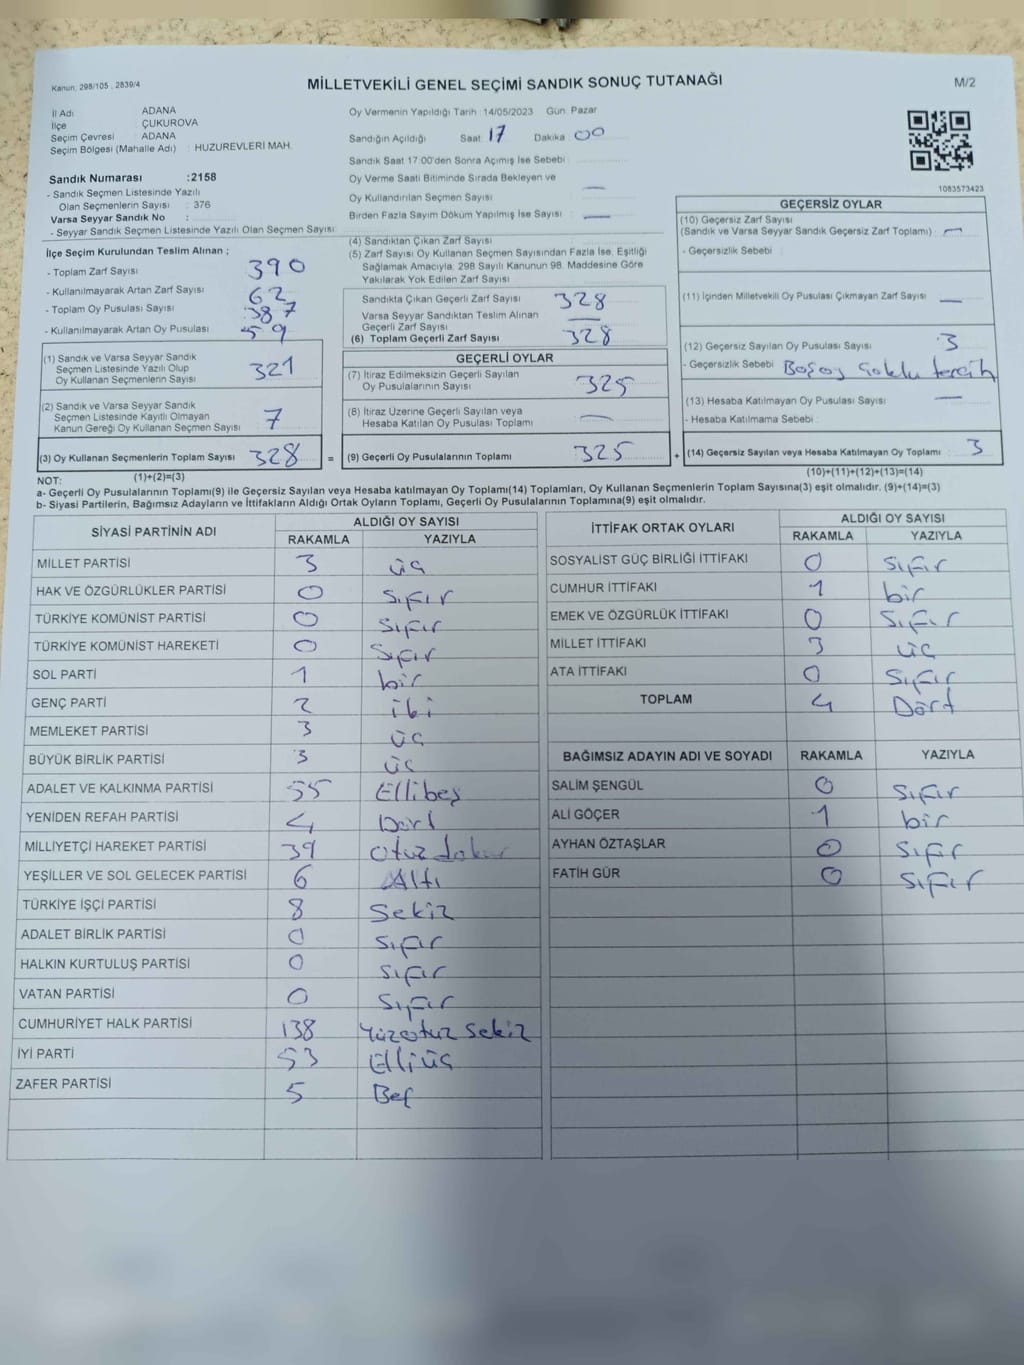 Kanun; 298/105 , 2839/4
MİLLETVEKİLİ GENEL SEÇİMİ SANDIK SONUÇ TUTANAĞI
M/2
İl Adı : ADANA
İlçe : ÇUKUROVA
Seçim Çevresi : ADANA
Seçim Bölgesi (Mahalle Adı) : HUZUREVLERİ MAH.
Sandık Numarası :2158
- Sandık Seçmen Listesinde Yazılı
Olan Seçmenlerin Sayısı : 376
Varsa Seyyar Sandık No :
- Seyyar Sandık Seçmen Listesinde Yazılı Olan Seçmen Sayısı:
Oy Vermenin Yapıldığı Tarih 14/05/2023 Gün: Pazar
Sandığın Açıldığı Saat 17 Dakika 00
Sandık Saat 17:00'den Sonra Açımış İse Sebebi
Oy Verme Saati Bitiminde Sırada Bekleyen ve
Oy Kullandırılan Seçmen Sayısı —
Birden Fazla Sayım Döküm Yapılmış İse Sayısı —
1083573423
İlçe Seçim Kurulundan Teslim Alınan ;
- Toplam Zarf Sayısı 390
- Kullanılmayarak Artan Zarf Sayısı 62
- Toplam Oy Pusulası Sayısı 387
- Kullanılmayarak Artan Oy Pusulası 59
(1) Sandık ve Varsa Seyyar Sandık
Seçmen Listesinde Yazılı Olup
Oy Kullanan Seçmenlerin Sayısı 321
(2) Sandık ve Varsa Seyyar Sandık
Seçmen Listesinde Kayıtlı Olmayan
Kanun Gereği Oy Kullanan Seçmen Sayısı 7
(3) Oy Kullanan Seçmenlerin Toplam Sayısı 328 =
(1)+(2)=(3)
(4) Sandıktan Çıkan Zarf Sayısı
(5) Zarf Sayısı Oy Kullanan Seçmen Sayısından Fazla İse, Eşitliği
Sağlamak Amacıyla, 298 Sayılı Kanunun 98. Maddesine Göre
Yakılarak Yok Edilen Zarf Sayısı
Sandıkta Çıkan Geçerli Zarf Sayısı 328
Varsa Seyyar Sandıktan Teslim Alınan
Geçerli Zarf Sayısı —
(6) Toplam Geçerli Zarf Sayısı 328
GEÇERLİ OYLAR
(7) İtiraz Edilmeksizin Geçerli Sayılan
Oy Pusulalarının Sayısı 325
(8) İtiraz Üzerine Geçerli Sayılan veya
Hesaba Katılan Oy Pusulası Toplamı —
(9) Geçerli Oy Pusulalarının Toplamı 325 +
GEÇERSİZ OYLAR
(10) Geçersiz Zarf Sayısı
(Sandık ve Varsa Seyyar Sandık Geçersiz Zarf Toplamı) —
- Geçersizlik Sebebi :
(11) İçinden Milletvekili Oy Pusulası Çıkmayan Zarf Sayısı —
(12) Geçersiz Sayılan Oy Pusulası Sayısı 3
- Geçersizlik Sebebi çoklu tercih
(13) Hesaba Katılmayan Oy Pusulası Sayısı —
- Hesaba Katılmama Sebebi :
(14) Geçersiz Sayılan veya Hesaba Katılmayan Oy Toplamı 3
(10)+(11)+(12)+(13)=(14)
NOT:
a- Geçerli Oy Pusulalarının Toplamı(9) ile Geçersiz Sayılan veya Hesaba katılmayan Oy Toplamı(14) Toplamları, Oy Kullanan Seçmenlerin Toplam Sayısına(3) eşit olmalıdır. (9)+(14)=(3)
b- Siyasi Partilerin, Bağımsız Adayların ve İttifakların Aldığı Ortak Oyların Toplamı, Geçerli Oy Pusulalarının Toplamına(9) eşit olmalıdır.
SİYASİ PARTİNİN ADI ALDIĞI OY SAYISI
RAKAMLA YAZIYLA
MİLLET PARTİSİ 3 üç
HAK VE ÖZGÜRLÜKLER PARTİSİ 0 Sıfır
TÜRKİYE KOMÜNİST PARTİSİ 0 Sıfır
TÜRKİYE KOMÜNİST HAREKETİ 0 Sıfır
SOL PARTİ 1 bir
GENÇ PARTİ 2 iki
MEMLEKET PARTİSİ 3 üç
BÜYÜK BİRLİK PARTİSİ 3 üç
ADALET VE KALKINMA PARTİSİ 55 Ellibeş
YENİDEN REFAH PARTİSİ 4 Dört
MİLLİYETÇİ HAREKET PARTİSİ 39 Otuzdokuz
YEŞİLLER VE SOL GELECEK PARTİSİ 6 Altı
TÜRKİYE İŞÇİ PARTİSİ 8 Sekiz
ADALET BİRLİK PARTİSİ 0 Sıfır
HALKIN KURTULUŞ PARTİSİ 0 Sıfır
VATAN PARTİSİ 0 Sıfır
CUMHURİYET HALK PARTİSİ 138 Yüzotuz sekiz
İYİ PARTİ 53 Elliüç
ZAFER PARTİSİ 5 Beş
İTTİFAK ORTAK OYLARI ALDIĞI OY SAYISI
RAKAMLA YAZIYLA
SOSYALİST GÜÇ BİRLİĞİ İTTİFAKI 0 Sıfır
CUMHUR İTTİFAKI 1 bir
EMEK VE ÖZGÜRLÜK İTTİFAKI 0 Sıfır
MİLLET İTTİFAKI 3 üç
ATA İTTİFAKI 0 Sıfır
TOPLAM 4 Dört
BAĞIMSIZ ADAYIN ADI VE SOYADI RAKAMLA YAZIYLA
SALİM ŞENGÜL 0 Sıfır
ALİ GÖÇER 1 bir
AYHAN ÖZTAŞLAR 0 Sıfır
FATİH GÜR 0 Sıfır